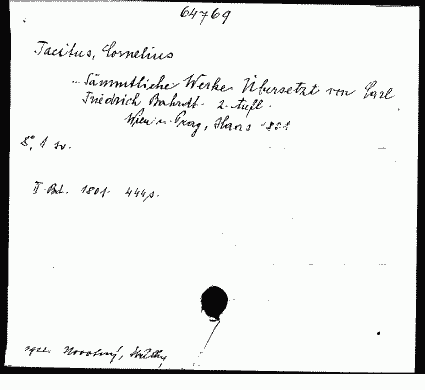 64769
Tacitus, Cornelius
... Sämmtliche Werke. Übersetzt von Carl
Friedrich Bahrdt. 2. Aufl.
Wien u. Prag, Haas 1801
8°, 1 sv.
II. Bd. 1801. 444 s.
Novotný,